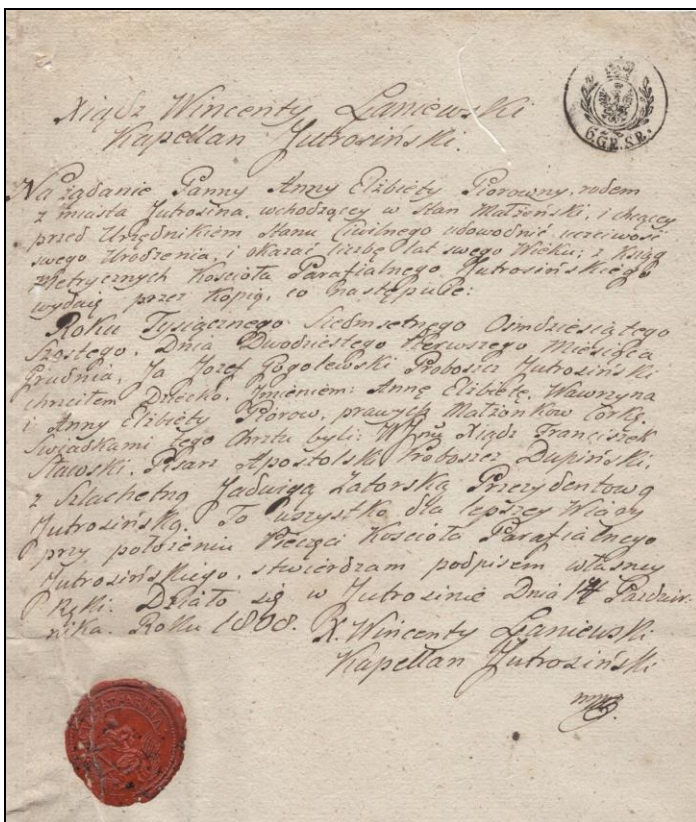 6.GR.SR.
Xiądz Wincenty Łaniewski
Kapellan Jutrosiński.
Na żądanie Panny Anny Elżbiety Piorowny, rodem
z miasta Jutrosina, wchodzącey w Stan Małżeński, i chcącey
przed Urzędnikiem Stanu Cywilnego udowodnić uczciwość
swego Urodzenia, i okazać liczbę lat swego Wieku; z Ksiąg
Metrycznych Kościoła Parafialnego Jutrosińskiego
wydaię przez Kopią, co następuie:
Roku Tysiącznego Siedmsetnego Osmdziesiątego
Szóstego, Dnia Dwudziestego Pierwszego Miesiąca
Grudnia, Ja Jozef Gogolewski Proboszcz Jutrosiński
chrzciłem Dziecko, Imieniem: Annę Elżbietę, Wawrzyna
i Anny Elżbiety Piorow, prawych Małżonków Córkę,
Swiadkami tego Chrztu byli: Xiądz Franciszek
Stawski, Pisarz Apostolski Proboszcz Dupiński,
z Szlachetną Jadwigą Zatorską Prezydentową
Jutrosińską. To wszystko dla lepszey Wiary
przy położeniu Pieczęci Kościoła Parafialnego
Jutrosińskiego, stwierdzam podpisem własney
Ręki. Działo się w Jutrosinie Dnia 14 Pazdzier-
nika. Roku 1808. X. Wincenty Łaniewski
Kapellan Jutrosiński